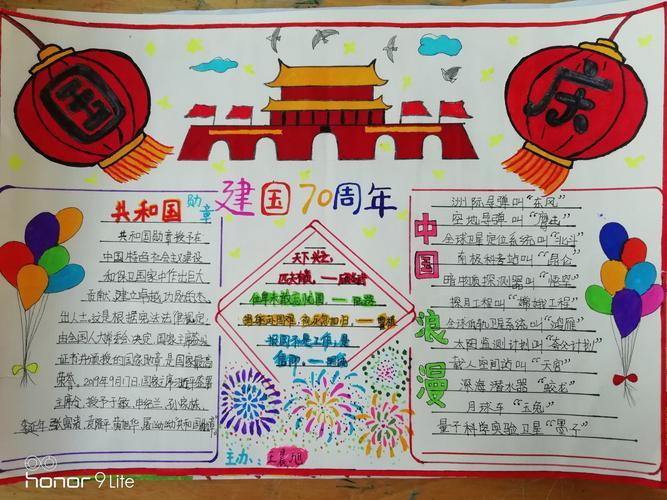 国
庆
建国70周年
共和国
勋章
共和国勋章授予在
中国特色社会主义建设
和保卫国家中作出巨大
贡献、建立卓越功勋的杰
出人士。这是根据宪法法律规定，
由全国人大常委会决定，国家主席签
证书并颁授的国家勋章，是国家最高
荣誉。2019年9月17日国家主席习近平签
主席令，授予于敏、申纪兰、孙家栋、
李延年、张富清、袁隆平、黄旭华、屠呦呦共和国勋章
天下兴亡，
匹夫有责，——顾炎武
位卑未敢忘忧国，——陆游
捐躯赴国难，视死忽如归，——曹植
中国
浪漫
洲际导弹叫“东风”
空地导弹叫“鹰击”
全球卫星定位系统叫“北斗”
南极科考站叫“昆仑”
暗物质探测器叫“悟空”
探月工程叫“嫦娥工程”
全球低轨卫星系统叫“鸿雁”
太阳监测计划叫“夸父计划”
载人空间站叫“天宫”
深海潜水器“蛟龙”
月球车“玉兔”
量子科学实验卫星“墨子”
主办：王晨旭
honor 9 Lite